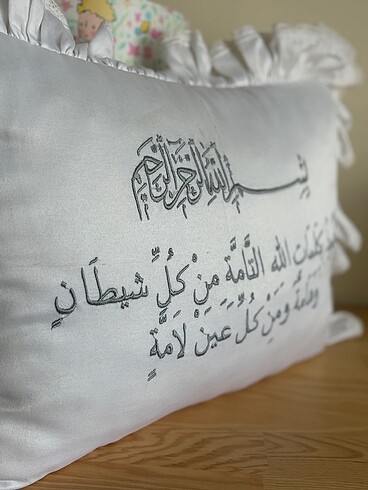 بِسْمِ اللهِ الرَّحْمَنِ الرَّحِيمِ
كَلِمَاتِ اللهِ التَّامَّةِ مِنْ كُلِّ شَيطَانٍ
وَهَامَّةٍ وَمِنْ كُلِّ عَيْنٍ لَامَّةٍ